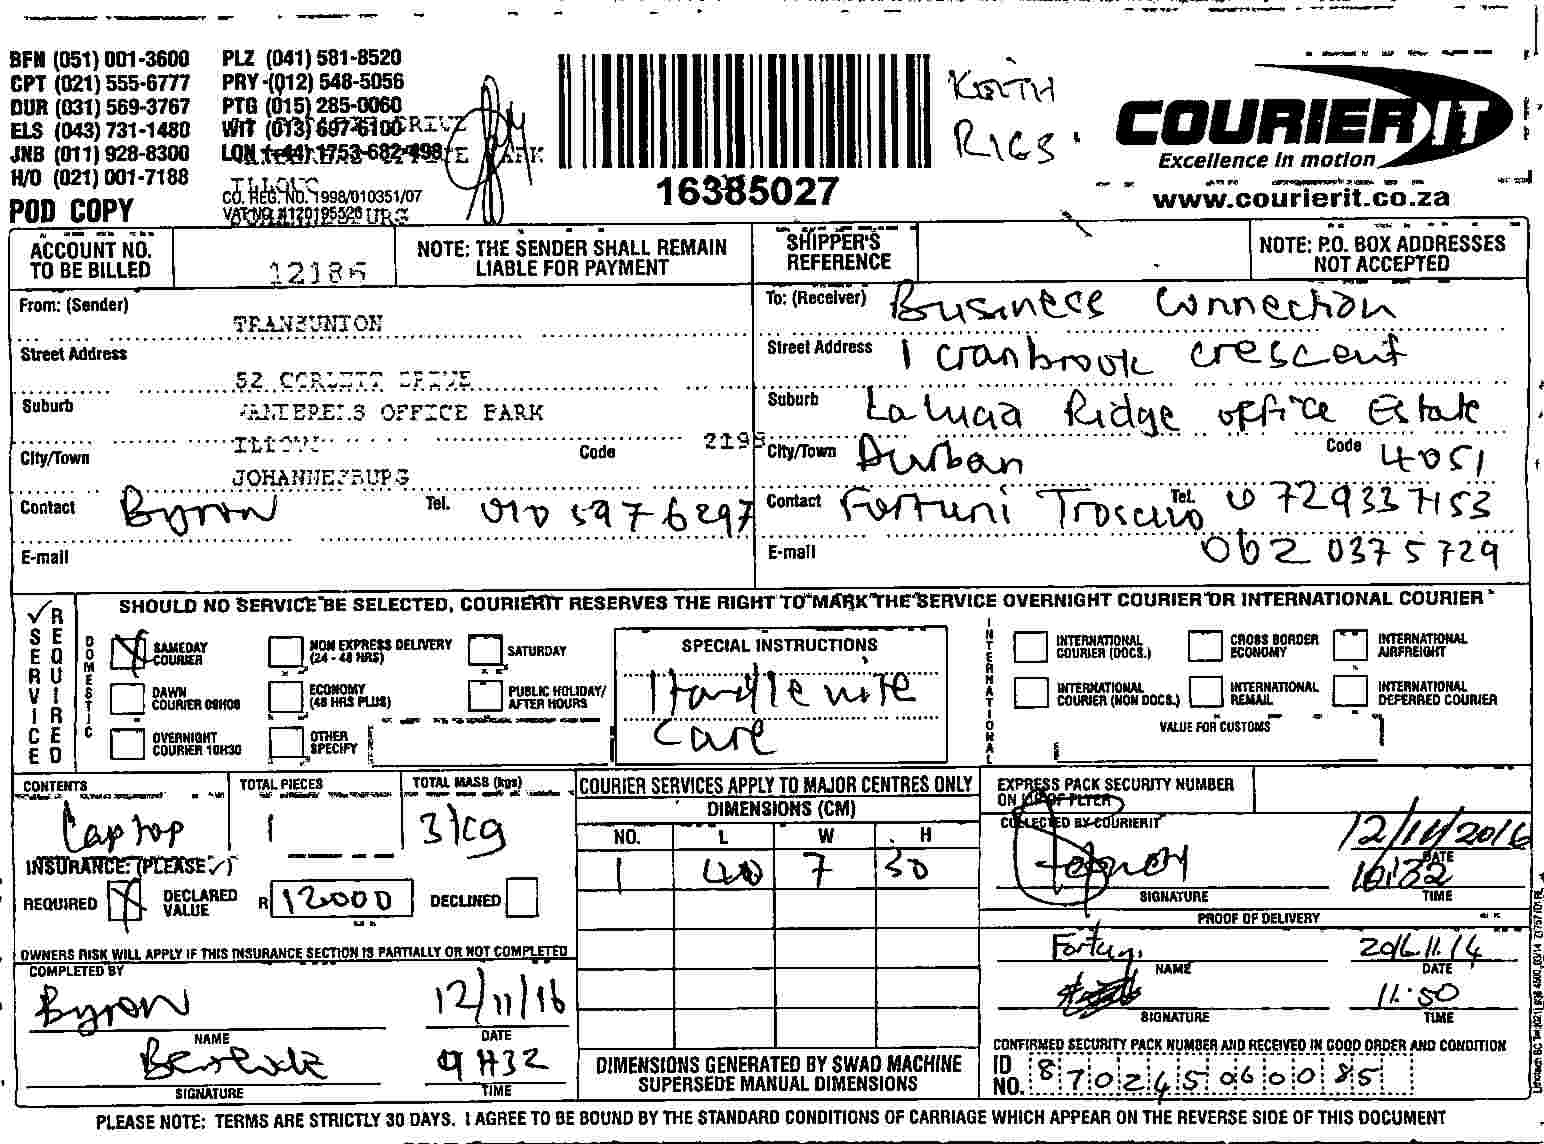 BFN (051) 001-3600 PLZ (041) 581-8520
CPT (021) 555-6777 PRY (012) 548-5056
DUR (031) 569-3767 PTG (015) 285-0060
ELS (043) 731-1480 WIT (013) 697-6100
JNB (011) 928-8300 LON (+44) 1753-682-498
H/O (021) 001-7188
CO. REG. NO. 1998/010351/07
POD COPY
16385027
RIGS.
COURIERIT
Excellence in motion
www.courierit.co.za
ACCOUNT NO. TO BE BILLED 12186
NOTE: THE SENDER SHALL REMAIN LIABLE FOR PAYMENT
SHIPPER'S REFERENCE
NOTE: P.O. BOX ADDRESSES NOT ACCEPTED
From: (Sender) TRANSUNION
Street Address 52 CORLETT DRIVE
Suburb WANDERERS OFFICE PARK
ILLOVO
City/Town JOHANNESBURG Code 2196
Contact Byron Tel. 010 597 6297
E-mail
To: (Receiver) Business Connection
Street Address 1 cranbrook crescent
Suburb La Lucia Ridge office Estate
City/Town Durban Code 4051
Contact Tel. 0729337153
E-mail 062 0375729
SERVICE REQUIRED
SHOULD NO SERVICE BE SELECTED, COURIERIT RESERVES THE RIGHT TO MARK THE SERVICE OVERNIGHT COURIER OR INTERNATIONAL COURIER
DOMESTIC
SAMEDAY COURIER
NON EXPRESS DELIVERY (24 - 48 HRS)
SATURDAY
DAWN COURIER 09H00
ECONOMY (48 HRS PLUS)
PUBLIC HOLIDAY/ AFTER HOURS
OVERNIGHT COURIER 10H30
OTHER SPECIFY
SPECIAL INSTRUCTIONS
Handle with
care
INTERNATIONAL
INTERNATIONAL COURIER (DOCS.)
CROSS BORDER ECONOMY
INTERNATIONAL AIRFREIGHT
INTERNATIONAL COURIER (NON DOCS.)
INTERNATIONAL REMAIL
INTERNATIONAL DEFERRED COURIER
VALUE FOR CUSTOMS
CONTENTS Laptop
TOTAL PIECES 1
TOTAL MASS (kgs) 3kg
INSURANCE: (PLEASE ✓)
REQUIRED X DECLARED VALUE R 12000 DECLINED
OWNERS RISK WILL APPLY IF THIS INSURANCE SECTION IS PARTIALLY OR NOT COMPLETED
COMPLETED BY
Byron 12/11/16
NAME DATE
9H32
SIGNATURE TIME
COURIER SERVICES APPLY TO MAJOR CENTRES ONLY
DIMENSIONS (CM)
NO. L W H
1 40 7 30
DIMENSIONS GENERATED BY SWAD MACHINE SUPERSEDE MANUAL DIMENSIONS
EXPRESS PACK SECURITY NUMBER
ON LIP OF FLYER
COLLECTED BY COURIERIT
12/11/2016
DATE
SIGNATURE TIME
PROOF OF DELIVERY
2016.11.14
NAME DATE
11:50
SIGNATURE TIME
CONFIRMED SECURITY PACK NUMBER AND RECEIVED IN GOOD ORDER AND CONDITION
ID NO. 870245060085
PLEASE NOTE: TERMS ARE STRICTLY 30 DAYS. I AGREE TO BE BOUND BY THE STANDARD CONDITIONS OF CARRIAGE WHICH APPEAR ON THE REVERSE SIDE OF THIS DOCUMENT